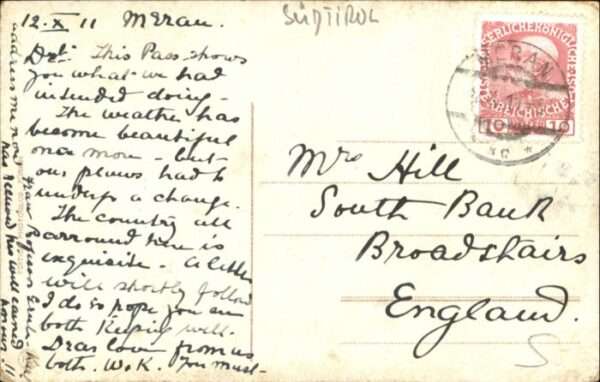 12. X. 11 Meran.
SÜDTIROL
This Pass shows
you what we had
intended doing -
The weather has
become beautiful
once more - but
our plans had to
undergo a change.
The country all
arround here is
exquisite - a letter
will shortly follow
I do so hope you are
both keeping well.
Dear love from us
both. W. & K. You must
address me now
Frau Professor
has received his well earned
honour !!
Mrs Hill
South Bank
Broadstairs
England.
MERAN
KAISERLICHEKÖNIGLICHE
ÖSTERREICHISCHE
10 10